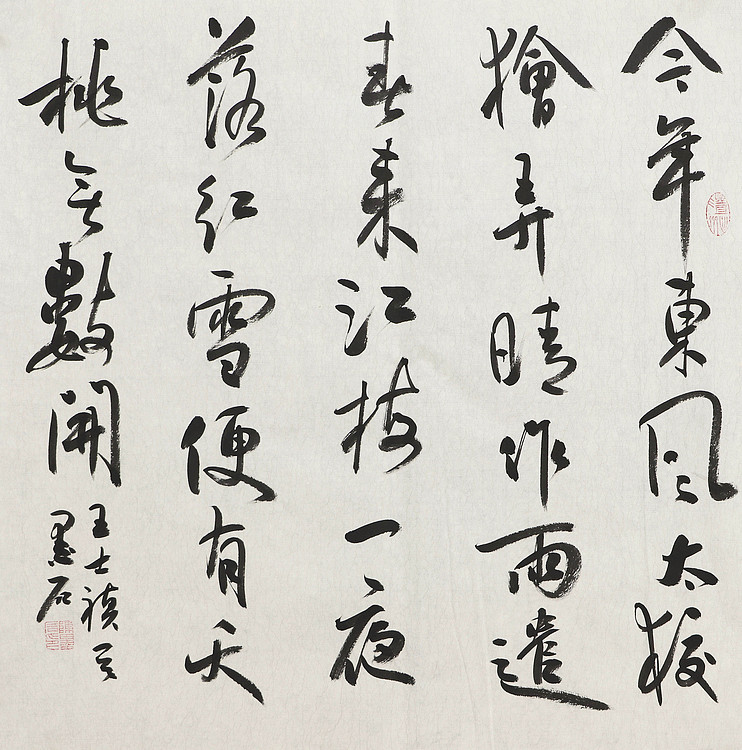 今年東風太狡
獪弄晴作雨遣
春来江枝一夜
落紅雪便有夭
桃無數開
王士禛
墨石